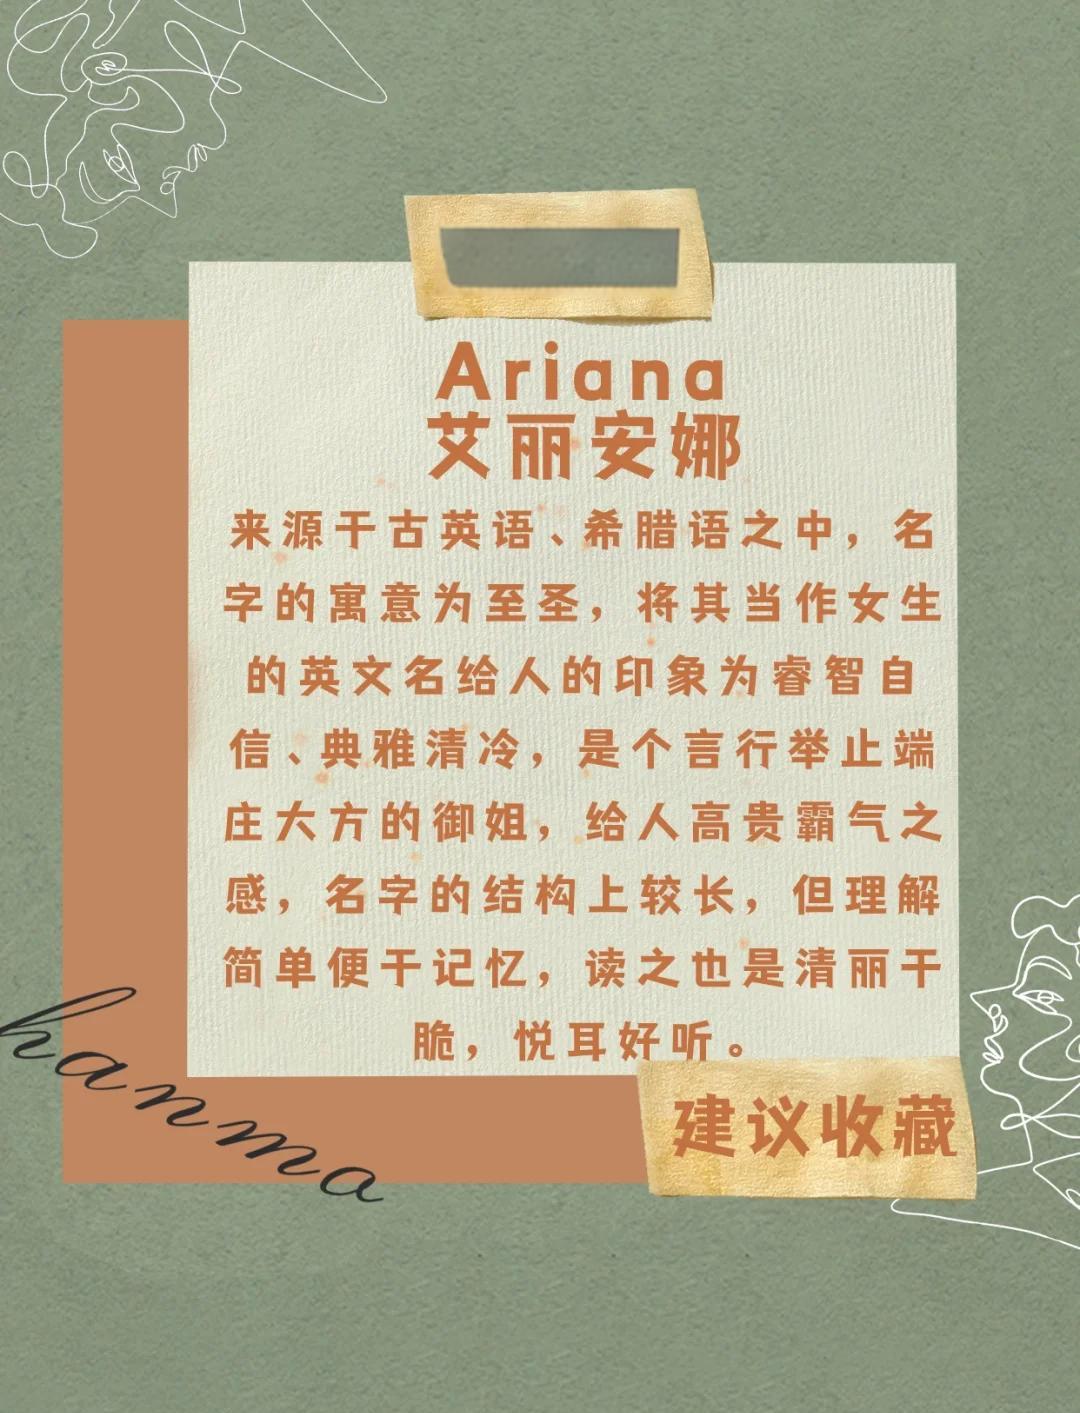 Ariana
艾丽安娜
来源于古英语、希腊语之中，名
字的寓意为至圣，将其当作女生
的英文名给人的印象为睿智自
信、典雅清冷，是个言行举止端
庄大方的御姐，给人高贵霸气之
感，名字的结构上较长，但理解
简单便于记忆，读之也是清丽干
脆，悦耳好听。
建议收藏
hanma